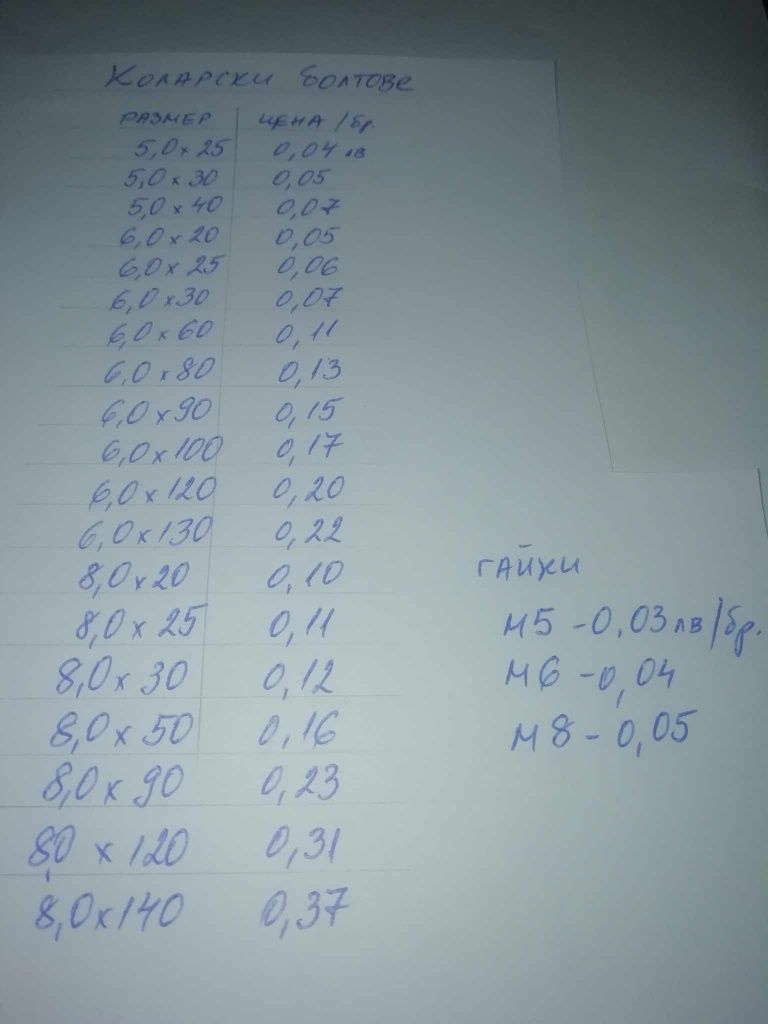 Коларски болтове
РАЗМЕР ЦЕНА/бр.
5,0 x 25 0,04 лв
5,0 x 30 0,05
5,0 x 40 0,07
6,0 x 20 0,05
6,0 x 25 0,06
6,0 x 30 0,07
6,0 x 60 0,11
6,0 x 80 0,13
6,0 x 90 0,15
6,0 x 100 0,17
6,0 x 120 0,20
6,0 x 130 0,22
8,0 x 20 0,10
8,0 x 25 0,11
8,0 x 30 0,12
8,0 x 50 0,16
8,0 x 90 0,23
8,0 x 120 0,31
8,0 x 140 0,37
ГАЙКИ
М5 - 0,03 лв/бр.
М6 - 0,04
М8 - 0,05